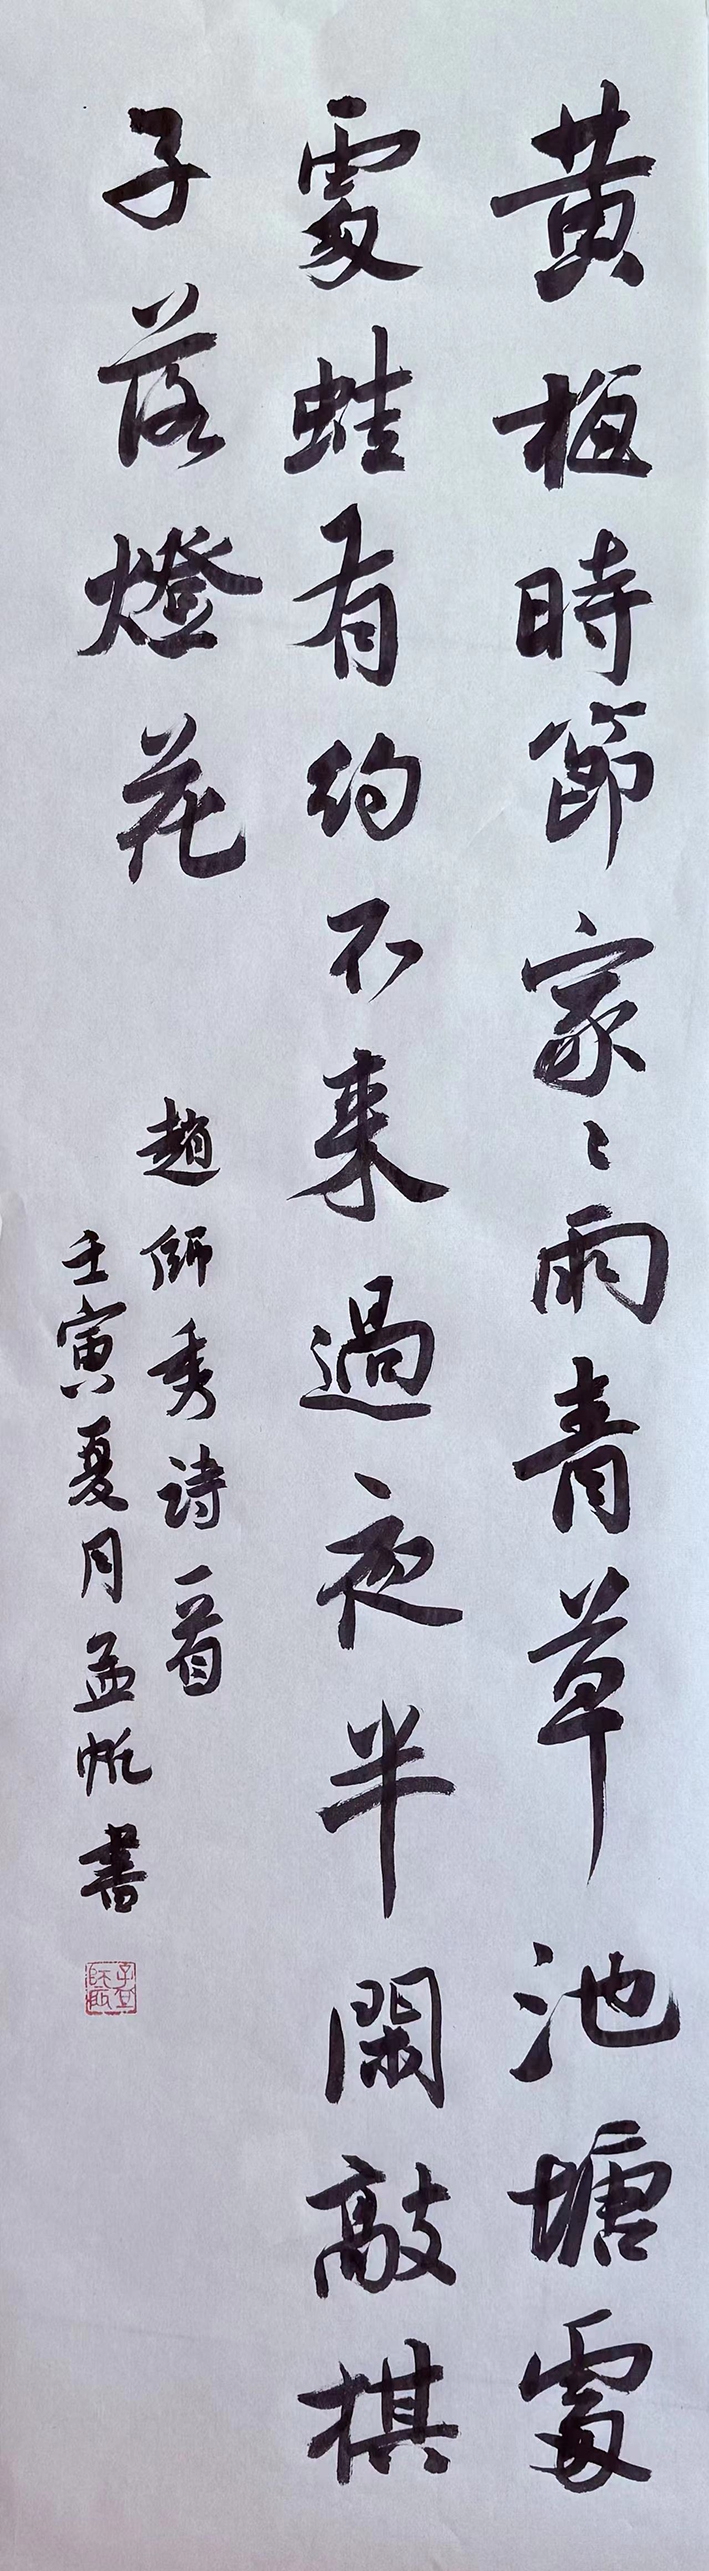 黄梅時節家〻雨青草池塘處
處蛙有約不来過夜半閑敲棋
子落燈花
趙師秀詩一首
壬寅夏月孟帆書